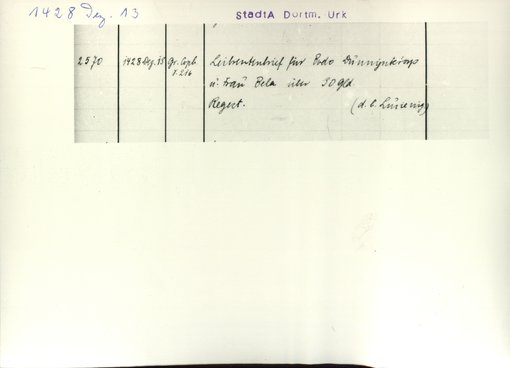 1428 Dez. 13
StadtA Dortm. Urk
2570
1428 Dez. 13
Gr. Copb.
I. 216
Leibrentenbrief für Bodo
u. Frau Bela über 50 Gld.
Regest.
(d. b. Lüscing)